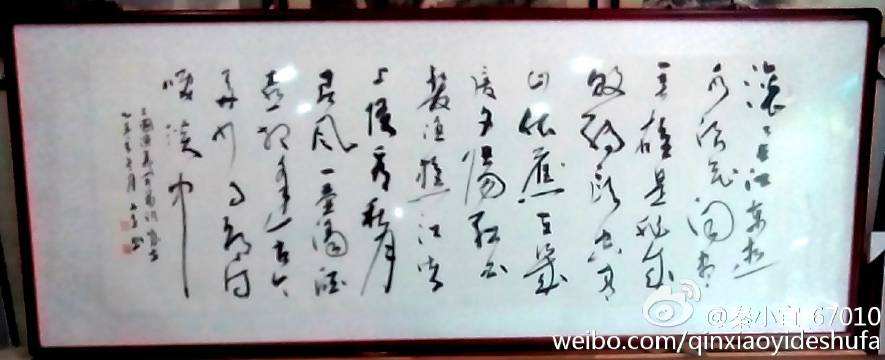 滚滚长江东逝
水浪花淘尽
英雄是非成
败转头空青
山依旧在几
度夕阳红白
发渔樵江渚
上惯看秋月
春风一壶浊酒
喜相逢古今
多少事都付
笑谈中
三国演义开篇词
乙未年七月
@秦小 67010
weibo.com/qinxiaoyideshufa